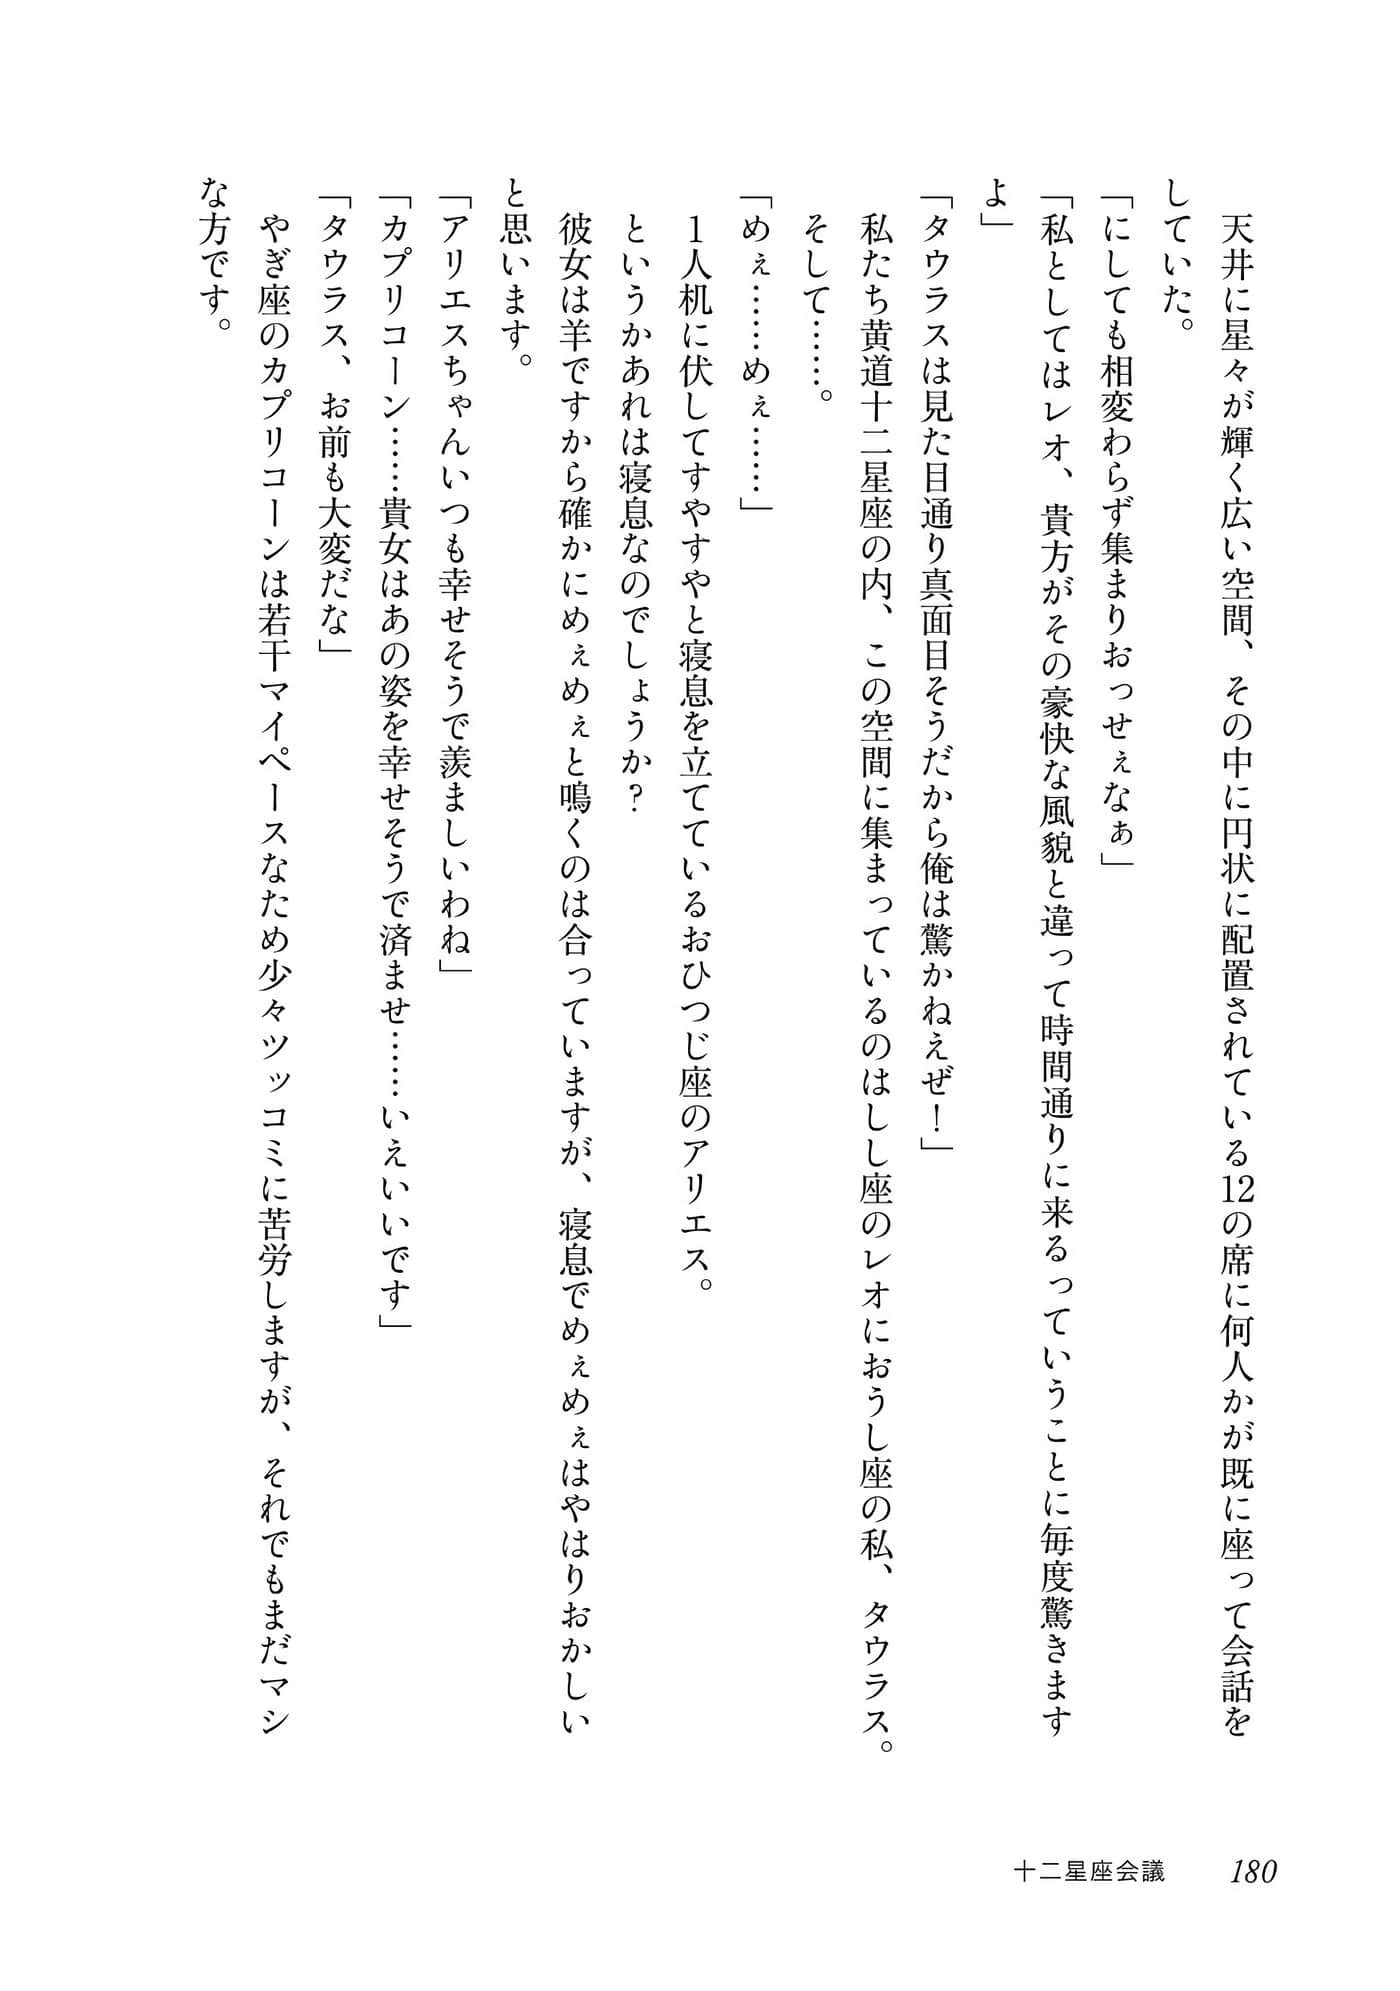 天井に星々が輝く広い空間、その中に円状に配置されている12の席に何人かが既に座って会話を
していた。
「にしても相変わらず集まりおっせぇなぁ」
「私としてはレオ、貴方がその豪快な風貌と違って時間通りに来るっていうことに毎度驚きます
よ」
「タウラスは見た目通り真面目そうだから俺は驚かねえぜ！」
私たち黄道十二星座の内、この空間に集まっているのはしし座のレオにおうし座の私、タウラス。
そして……。
「めぇ……めぇ……」
1人机に伏してすやすやと寝息を立てているおひつじ座のアリエス。
というかあれは寝息なのでしょうか？
彼女は羊ですから確かにめぇめぇと鳴くのは合っていますが、寝息でめぇめぇはやはりおかしい
と思います。
「アリエスちゃんいつも幸せそうで羨ましいわね」
「カプリコーン……貴女はあの姿を幸せそうで済ませ……いえいいです」
「タウラス、お前も大変だな」
やぎ座のカプリコーンは若干マイペースなため少々ツッコミに苦労しますが、それでもまだマシ
な方です。
十二星座会議 180